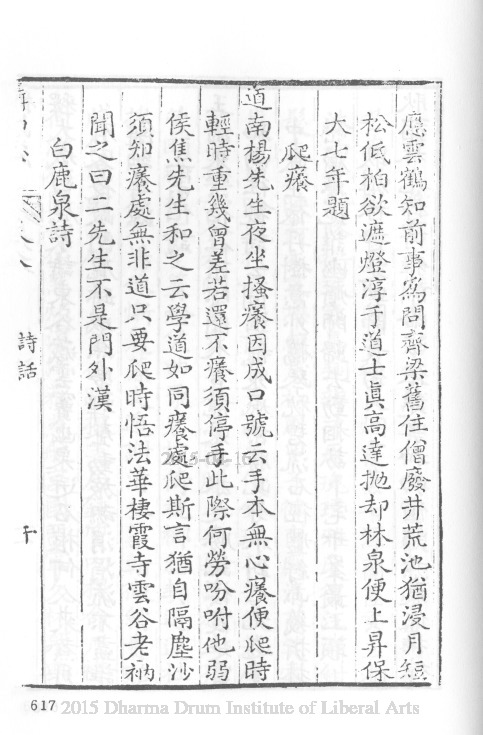 應雲鶴知前事為問齊梁舊住僧廢井荒池猶浸月短
松低柏欲遮燈淳于道士真高達拋却林泉便上昇保
大七年題
爬癢
道南楊先生夜坐搔癢因成口號云手本無心癢便爬時
輕時重幾曾差若還不癢須停手此際何勞吩咐他弱
侯焦先生和之云學道如同癢處爬斯言猶自隔塵沙
須知癢處無非道只要爬時悟法華棲霞寺雲谷老衲
聞之曰二先生不是門外漢
白鹿泉詩
詩話
617 2015 Dharma Drum Institute of Liberal Arts